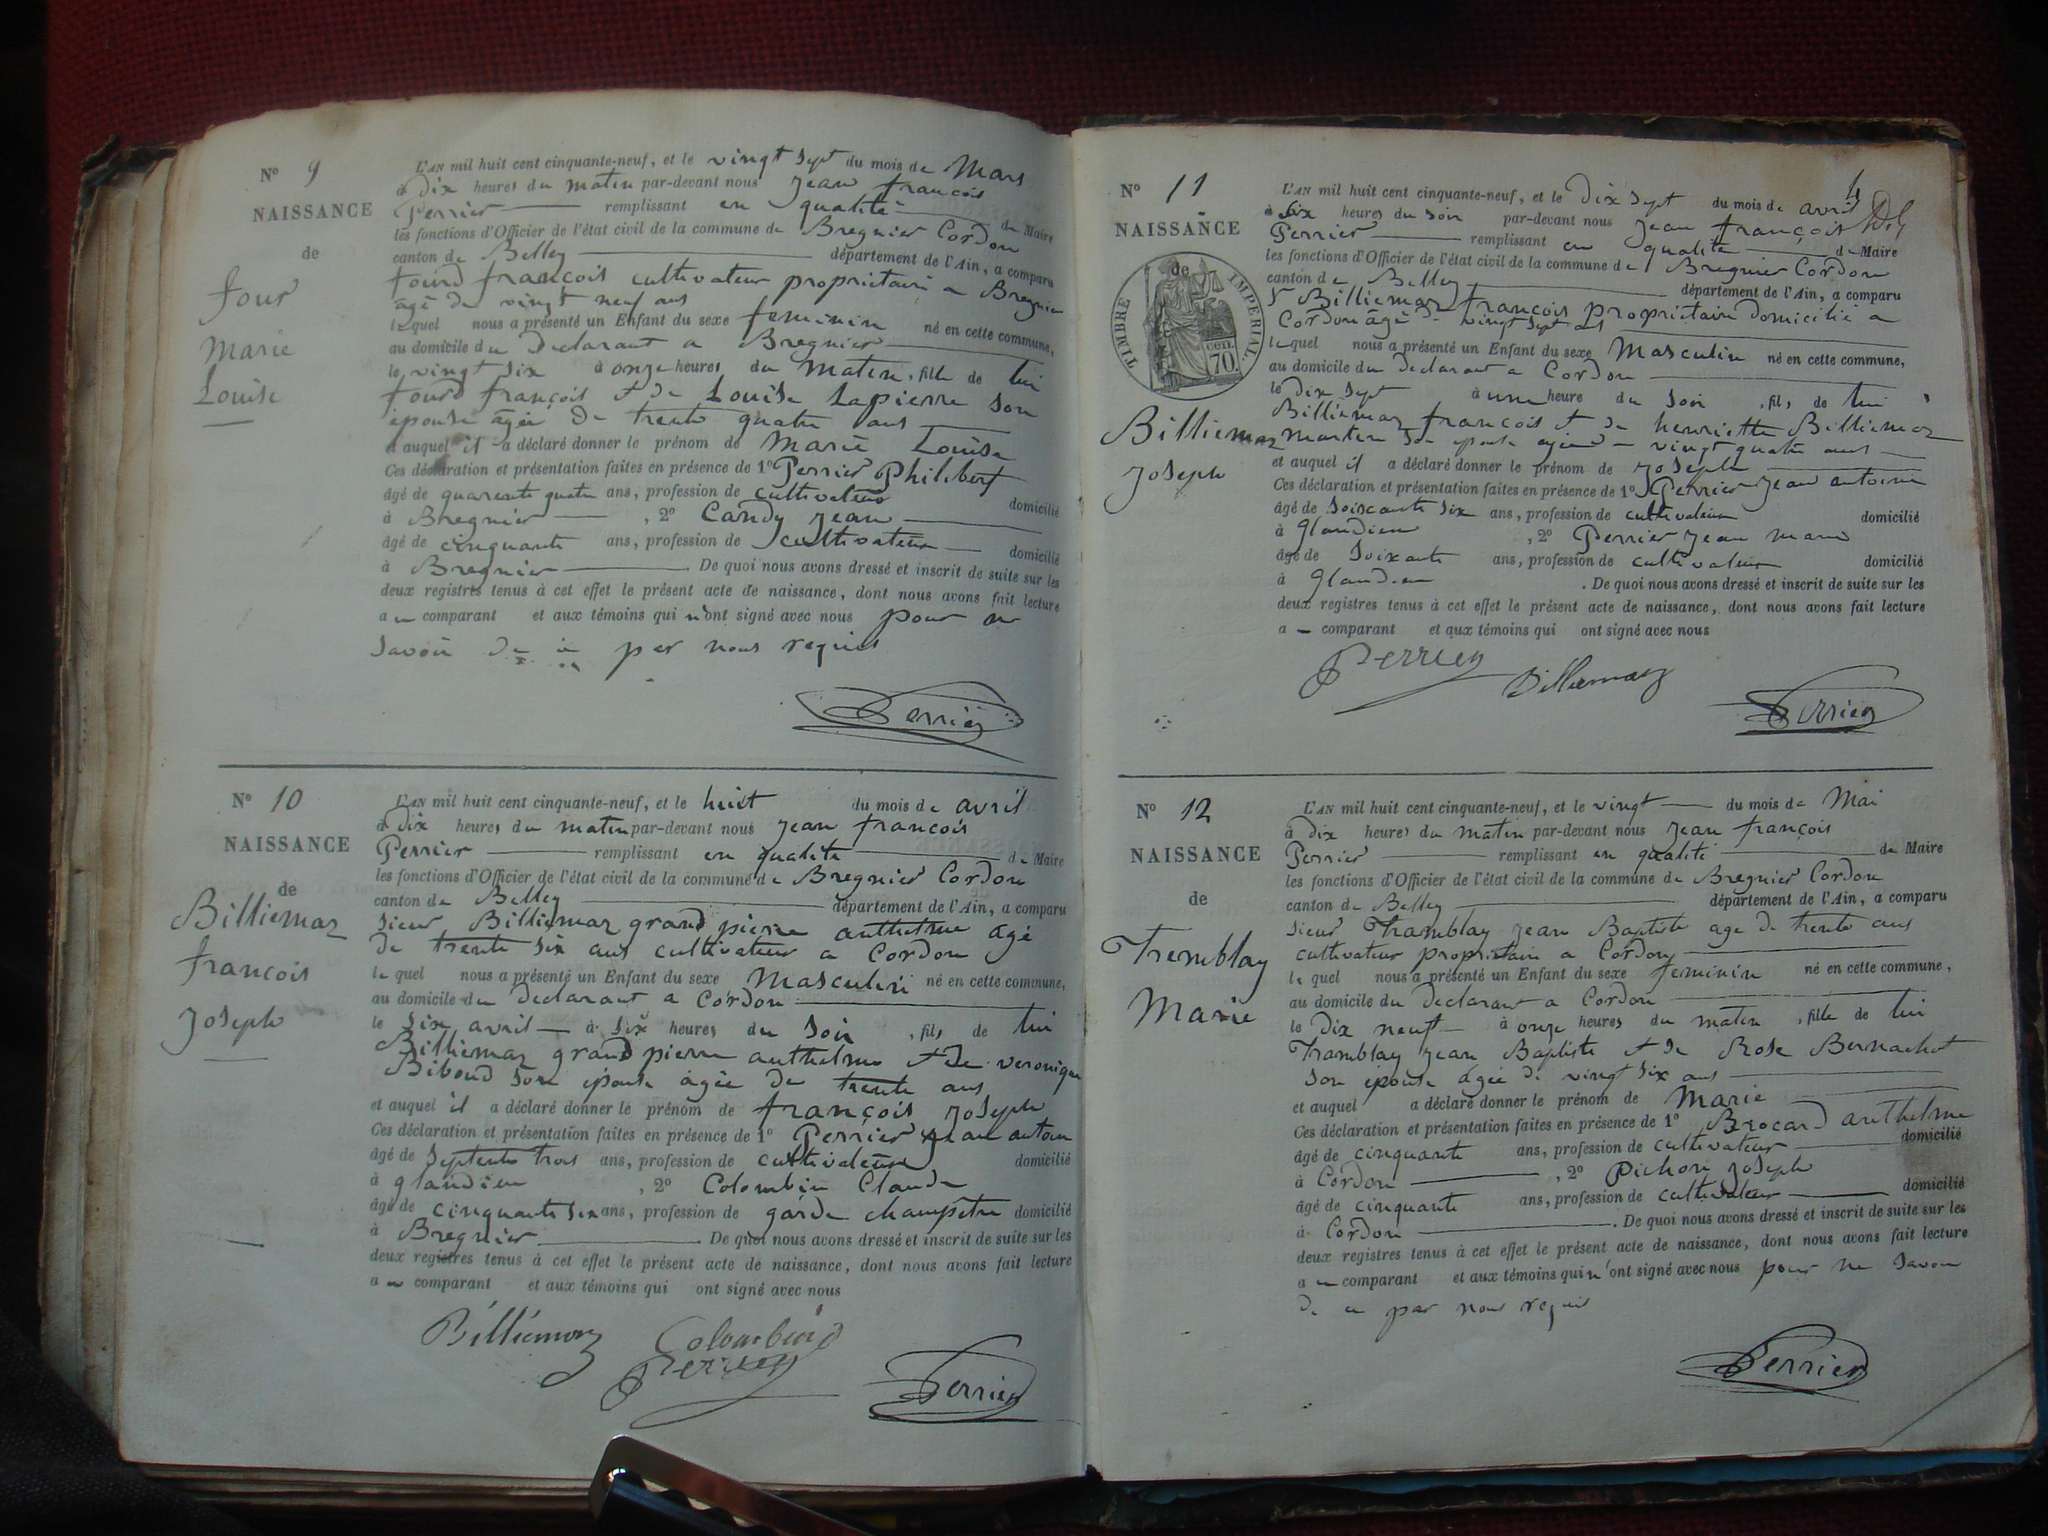 N° 9
NAISSANCE
de
four
Marie
Louise
L'AN mil huit cent cinquante-neuf, et le vingt sept du mois de Mars
à dix heures du matin par-devant nous Jean françois
Perrier remplissant en qualité de Maire
les fonctions d'Officier de l'état civil de la commune de Bregnier Cordon
canton de Belley département de l'Ain, a comparu
fourd françois cultivateur propriétaire a Bregnier
âgé de vingt neuf ans
lequel nous a présenté un Enfant du sexe feminin né en cette commune,
au domicile du Declarant a Bregnier
le vingt six à onze heures du matin, fille de lui
fourd françois & de Louise Lapierre son
épouse âgée de trente quatre ans
et auquel il a déclaré donner le prénom de Marie Louise
Ces déclaration et présentation faites en présence de 1° Perrier Philibert
âgé de quarente quatre ans, profession de cultivateur domicilié
à Bregnier, 2° Candy Jean
âgé de cinquante ans, profession de cultivateur domicilié
à Bregnier. De quoi nous avons dressé et inscrit de suite sur les
deux registres tenus à cet effet le présent acte de naissance, dont nous avons fait lecture
au comparant et aux témoins qui n'ont signé avec nous pour ne
savoir de ce par nous requis
Perrier
N° 10
NAISSANCE
de
Billiemaz
françois
Joseph
L'AN mil huit cent cinquante-neuf, et le huit du mois de avril
à Dix heures du matin par-devant nous Jean françois
Perrier remplissant en qualité de Maire
les fonctions d'Officier de l'état civil de la commune de Bregnier Cordon
canton de Belley département de l'Ain, a comparu
sieur Billiemaz grand pierre anthelme âgé
de trente six ans cultivateur a Cordon
lequel nous a présenté un Enfant du sexe Masculin né en cette commune,
au domicile du Declarant a Cordon
le six avril à six heures du soir, fils de lui
Billiemaz grand pierre anthelme & de veronique
Biboud son épouse âgée de trente ans
et auquel il a déclaré donner le prénom de françois Joseph
Ces déclaration et présentation faites en présence de 1° Perrier Jean antoin
âgé de septente trois ans, profession de cultivateur domicilié
à glandieu, 2° Colombin Claude
âgé de cinquante six ans, profession de garde champêtre domicilié
à Bregnier. De quoi nous avons dressé et inscrit de suite sur les
deux registres tenus à cet effet le présent acte de naissance, dont nous avons fait lecture
au comparant et aux témoins qui ont signé avec nous
Billiemaz Colombin
Perrier Perrier
N° 11
NAISSANCE
de
TIMBRE IMPÉRIAL
70 cen.
Billiemaz
Joseph
4
L'AN mil huit cent cinquante-neuf, et le Dix sept du mois de avril
à six heures du soir par-devant nous Jean françois
Perrier remplissant en qualité de Maire
les fonctions d'Officier de l'état civil de la commune de Bregnier Cordon
canton de Belley département de l'Ain, a comparu
Sr Billiemaz françois propriétaire domicilié a
Cordon âgé de vingt sept ans
lequel nous a présenté un Enfant du sexe Masculin né en cette commune,
au domicile du declarant a Cordon
le dix sept à une heure du soir, fils de lui
Billiemaz françois & de henriette Billiemaz
martin son épouse agée de vingt quatre ans
et auquel il a déclaré donner le prénom de Joseph
Ces déclaration et présentation faites en présence de 1° Perrier Jean antoine
âgé de soixante six ans, profession de cultivateur domicilié
à glandieu, 2° Perrier Jean marie
âgé de soixante ans, profession de cultivateur domicilié
à glandieu. De quoi nous avons dressé et inscrit de suite sur les
deux registres tenus à cet effet le présent acte de naissance, dont nous avons fait lecture
au comparant et aux témoins qui ont signé avec nous
Perrier Billiemaz Perrier
N° 12
NAISSANCE
de
Tremblay
Marie
L'AN mil huit cent cinquante-neuf, et le vingt du mois de Mai
à dix heures du matin par-devant nous Jean françois
Perrier remplissant en qualité de Maire
les fonctions d'Officier de l'état civil de la commune de Bregnier Cordon
canton de Belley département de l'Ain, a comparu
sieur Tramblay Jean Baptiste age de trente ans
cultivateur propriétaire a Cordon
lequel nous a présenté un Enfant du sexe feminin né en cette commune,
au domicile du declarant a Cordon
le Dix neuf à onze heures du matin, fille de lui
Tramblay Jean Baptiste & de Rose Bernachot
son épouse âgée de vingt six ans
et auquel a déclaré donner le prénom de Marie
Ces déclaration et présentation faites en présence de 1° Brocard anthelme
âgé de cinquante ans, profession de cultivateur domicilié
à Cordon, 2° Pichon Joseph
âgé de cinquante ans, profession de cultivateur domicilié
à Cordon. De quoi nous avons dressé et inscrit de suite sur les
deux registres tenus à cet effet le présent acte de naissance, dont nous avons fait lecture
au comparant et aux témoins qui n'ont signé avec nous pour ne savoir
de ce par nous requis
Perrier